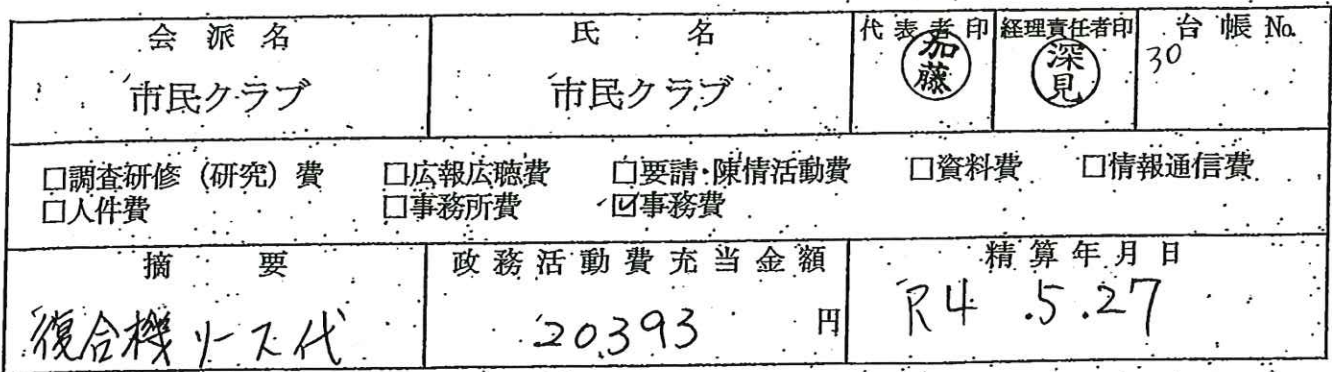 会派名 氏名 代表者印 経理責任者印 台帳No.
市民クラブ 市民クラブ 加藤 深見 30
□調査研修（研究）費 □広報広聴費 □要請・陳情活動費 □資料費 □情報通信費
□人件費 □事務所費 ☑事務費
摘要 政務活動費充当金額 精算年月日
復合機リース代 20,393 円 R4.5.27